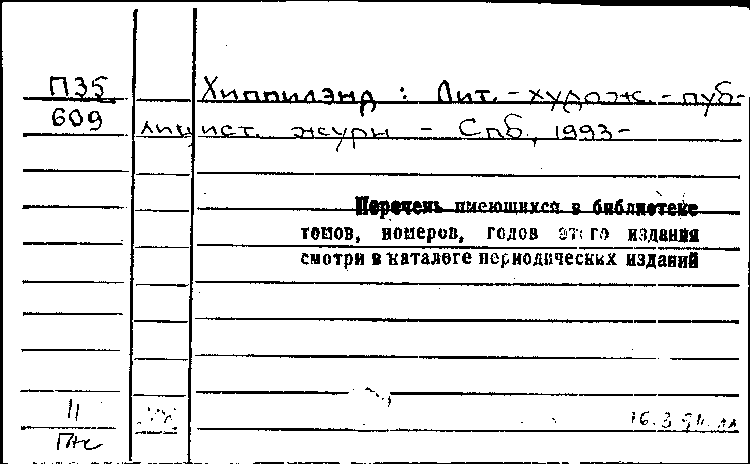 П35
609
Хиппилэнд : Лит.-худож.-пуб-
лицист. журн - Спб, 1993-
Перечень имеющихся в библиотеке
томов, номеров, годов этого издания
смотри в каталоге периодических изданий
11
16.3.94